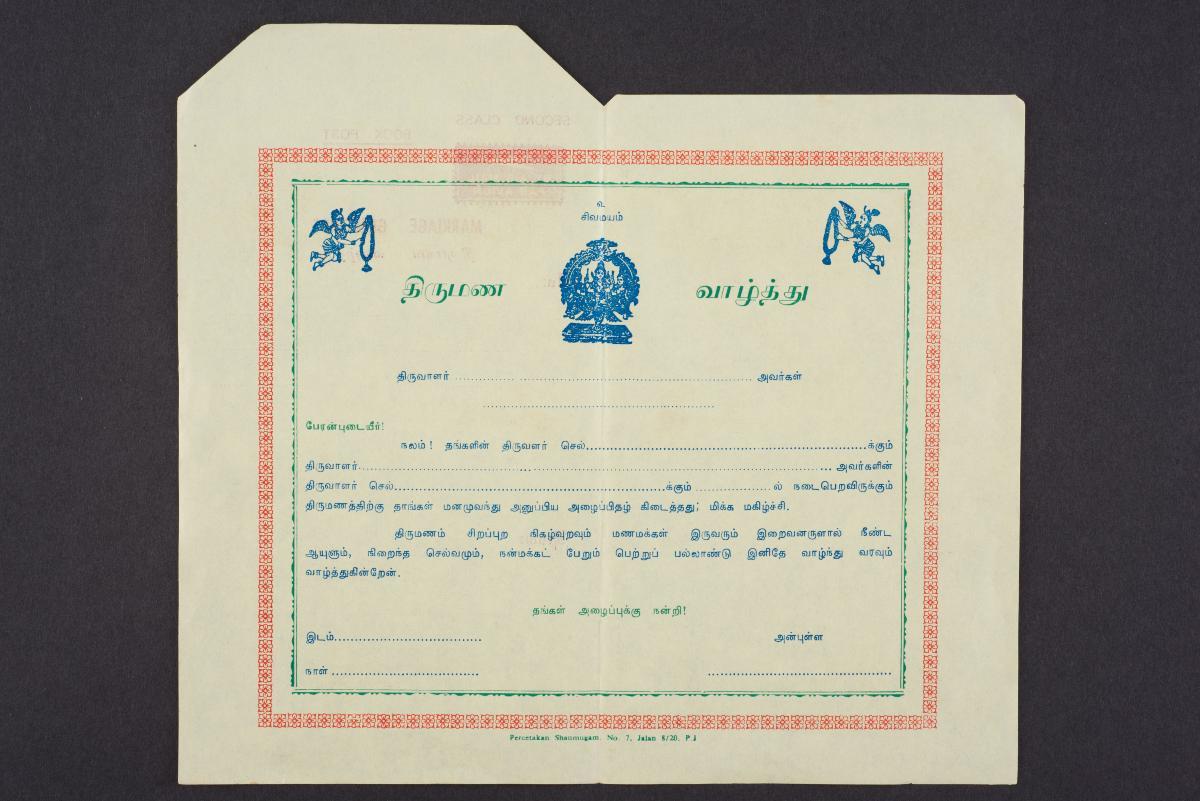 உ
சிவமயம்
திருமண வாழ்த்து
திருவாளர் ............................................................ அவர்கள்
............................................................
பேரன்புடையீர்!
நலம்! தங்களின் திருவளர் செல்............................................................க்கும்
திருவாளர்............................................................ அவர்களின்
திருவாளர் செல்............................................................க்கும் ....................ல் நடைபெறவிருக்கும்
திருமணத்திற்கு தாங்கள் மனமுவந்து அனுப்பிய அழைப்பிதழ் கிடைத்தது; மிக்க மகிழ்ச்சி.
திருமணம் சிறப்புற நிகழ்வுறவும் மணமக்கள் இருவரும் இறைவனருளால் நீண்ட
ஆயுளும், நிறைந்த செல்வமும், நன்மக்கட் பேறும் பெற்றுப் பல்லாண்டு இனிதே வாழ்ந்து வரவும்
வாழ்த்துகின்றேன்.
தங்கள் அழைப்புக்கு நன்றி!
இடம்.................................... அன்புள்ள
நாள் .................................... ............................................
Percetakan Shanmugam. No. 7, Jalan 8/20. P.J
SECOND CLASS
BOOK POST
MARRIAGE